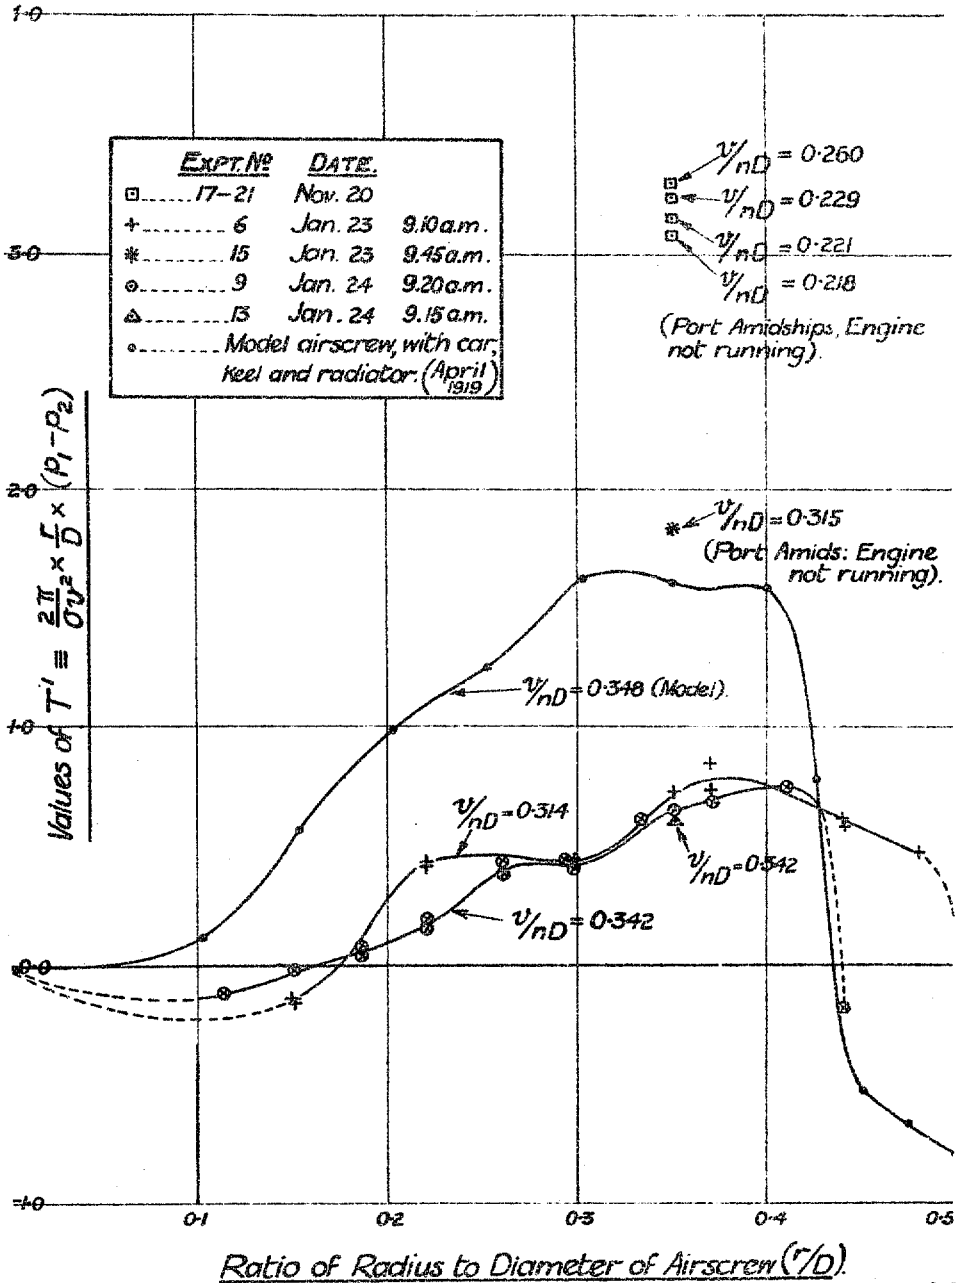 1·0
EXPT. Nº DATE.
17-21 Nov. 20
6 Jan. 23 9.10 a.m.
15 Jan. 23 9.45 a.m.
9 Jan. 24 9.20 a.m.
13 Jan. 24 9.15 a.m.
Model airscrew, with car,
keel and radiator. (April 1919)
v/nD = 0·260
v/nD = 0·229
v/nD = 0·221
v/nD = 0·218
(Port Amidships, Engine
not running).
3·0
Values of T' ≡ 2π/σv² × r/D × (p₁-p₂)
2·0
v/nD = 0·315
(Port Amids: Engine
not running).
v/nD = 0·348 (Model).
1·0
v/nD = 0·314
v/nD = 0·342
v/nD = 0·342
0·0
-1·0
0·1 0·2 0·3 0·4 0·5
Ratio of Radius to Diameter of Airscrew (r/D).